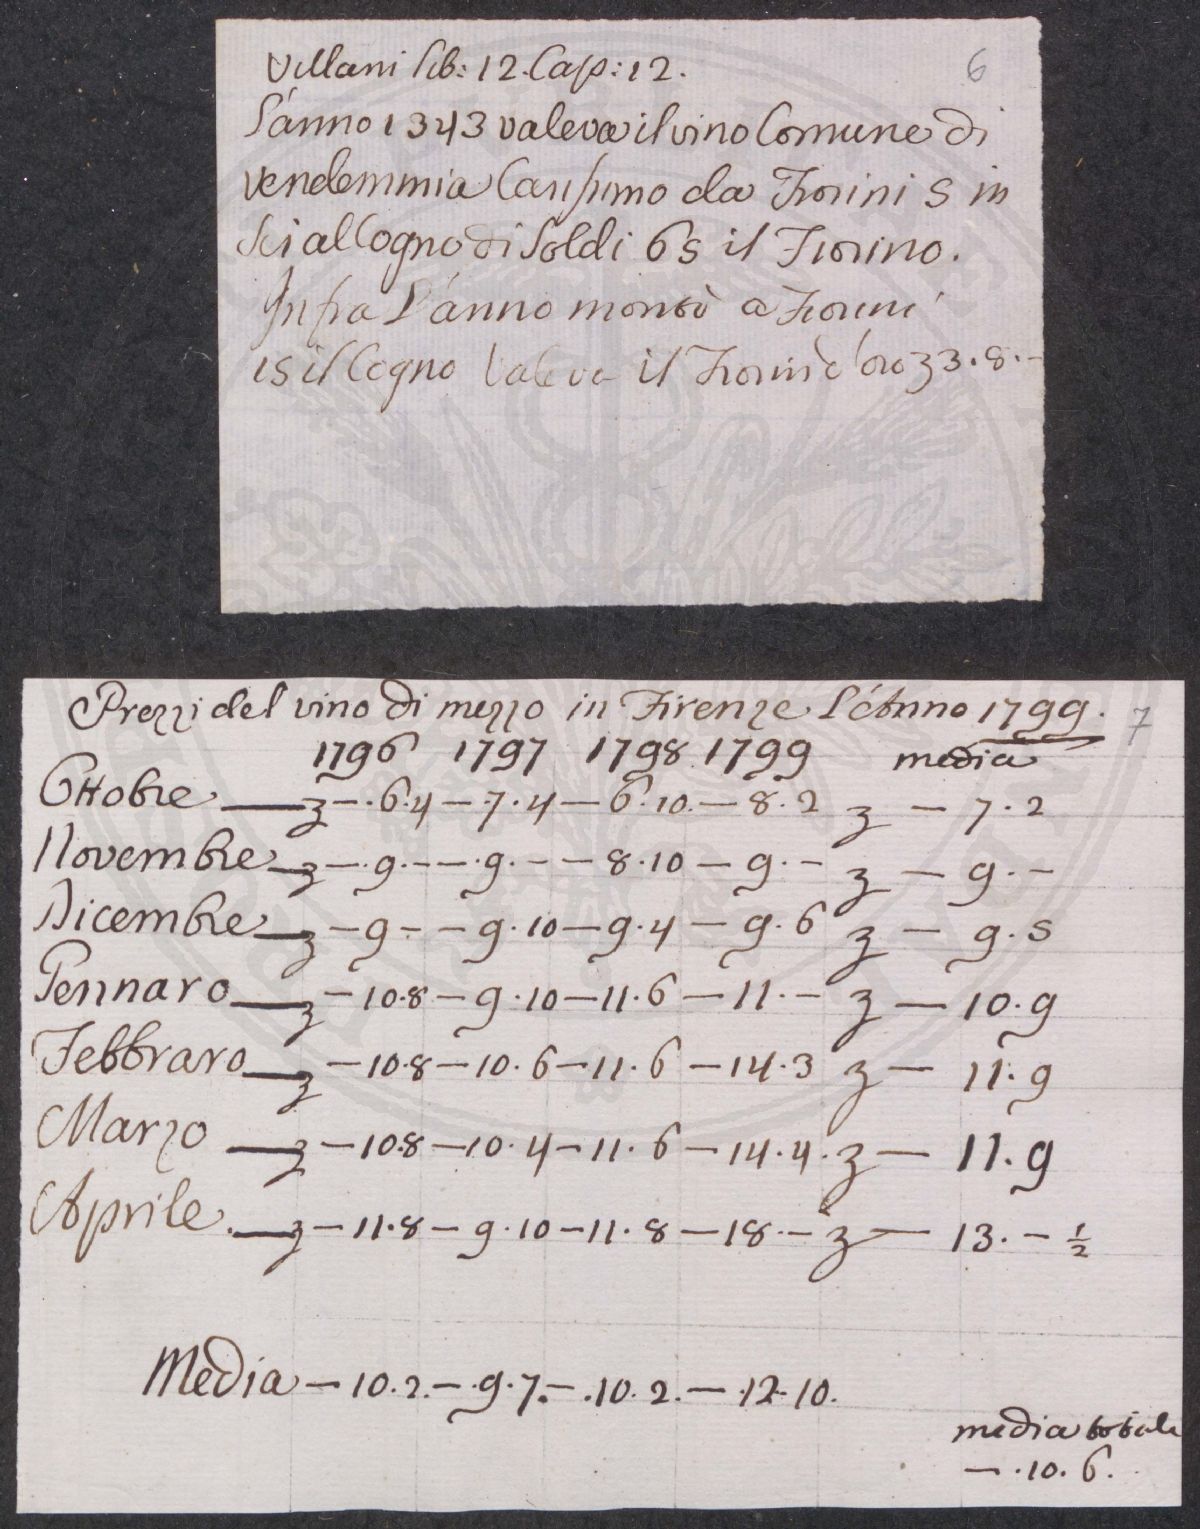 Villani lib: 12. Cap: 12.
6
L'anno 1343 valeva il vino Comune di
vendemmia Carissimo da Fiorini 5 in
sei al Cogno di Soldi 65 il Fiorino.
Infra L'anno montò a Fiorini
15 il Cogno Valeva il Fiorin d'oro 3 3.8.-
Prezzi del vino di mezzo in Firenze L'Anno 1799.
7
1796 1797 1798 1799 media
Ottobre — 3 — . 6.4 — 7.4 — 6.10. — 8.2 3 — 7.2
Novembre — 3 — . 9. — — . 9. — — 8.10 — 9. — 3 — 9. —
Dicembre — 3 — 9 - — 9.10 — 9.4 — 9.6 3 — 9.5
Gennaro — 3 — 10.8 — 9.10 — 11.6 — 11. — 3 — 10.9
Febbraro — 3 — 10.8 — 10.6 — 11.6 — 14.3 3 — 11.9
Marzo — 3 — 10.8 — 10.4 — 11.6 — 14.4. 3 — 11.9
Aprile. — 3 — 11.8 — 9.10 — 11.8 — 18. — 3 — 13. — ½
Media — 10.2. — . 9.7. — . 10.2. — . 12.10.
media totale
— . 10.6.